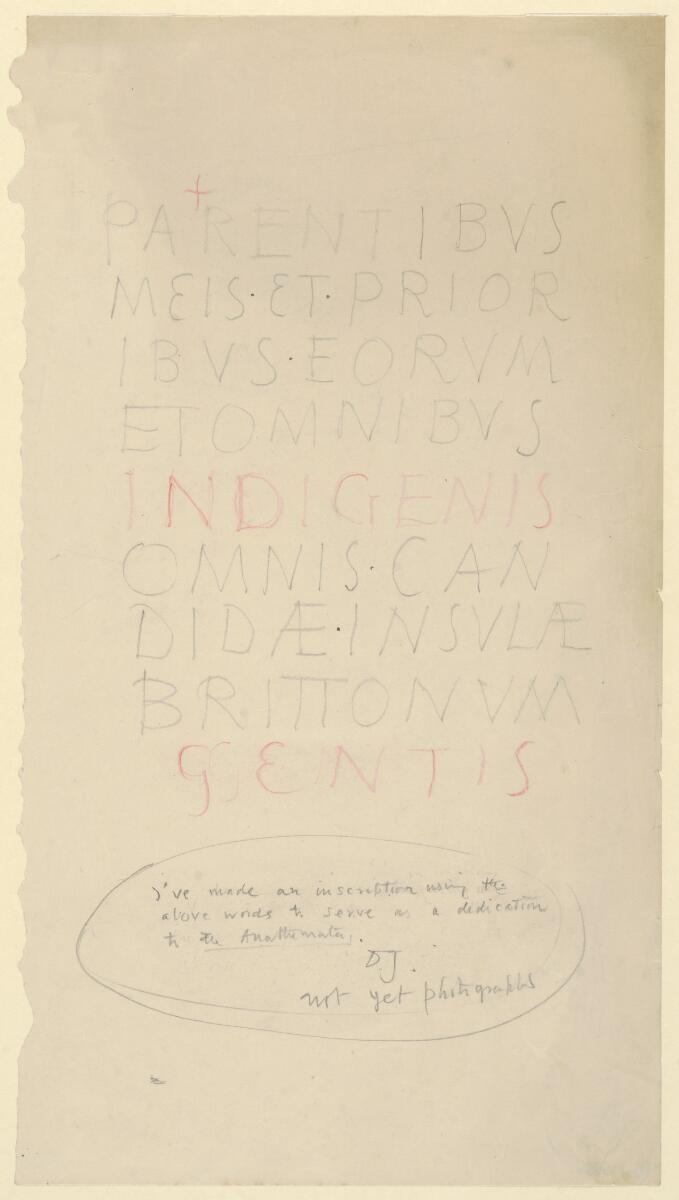 +
PARENTIBVS
MEIS·ET·PRIOR
IBVS·EORVM
ETOMNIBVS
INDIGENIS
OMNIS·CAN
DIDÆ·INSVLÆ
BRITTONVM
GENTIS
I've made an inscription using the
above words to serve as a dedication
to the Anathemata.
D.J.
not yet photographed